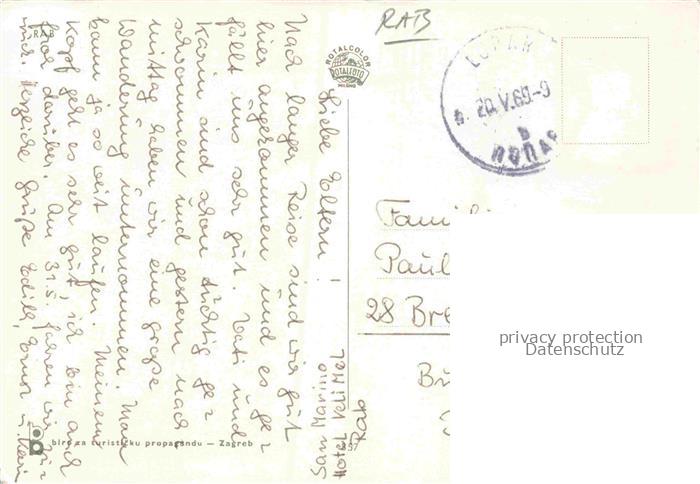 RAB
RAB
ROTALCOLOR
ROTALFOTO
MILANO
LOPAR
20.V.69-9
ЛОПАР
Liebe Eltern!
Nach langer Reise sind wir gut
hier angekommen und es ge=
fällt uns sehr gut. Vati und
Karin sind schon tüchtig ge=
schwommen und gestern nach=
mittag haben wir eine große
Wanderung unternommen. Man
kann ja so weit laufen. Meinem
Kopf geht es sehr gut, ich bin auch
froh darüber. Am 31.5. fahren wir
Herzliche Grüße Edith, Ernst u. Karin
San Marino
Rab
Famili
Paul
28 Bre
privacy protection
Datenschutz
biro za turističku propagandu — Zagreb